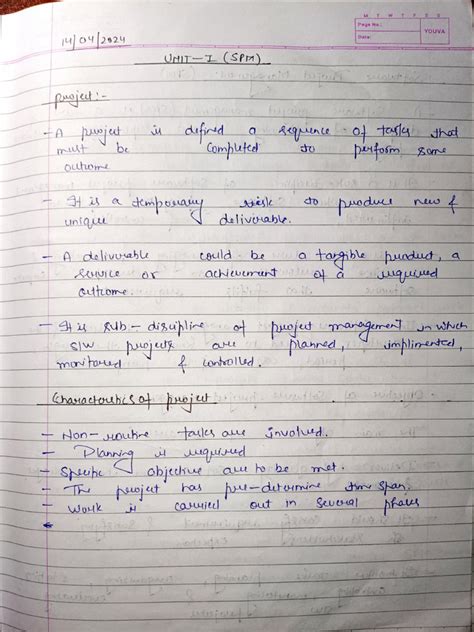 M T W T F S S
Page No.:
Date:
YOUVA
14/04/2024
UNIT-I (SPM)
project:-
- A project is defined a sequence of tasks that
must be completed to perform some
outcome
- It is a temporary risk to produce new &
unique deliverable.
- A deliverable could be a tangible product, a
service or achievement of a required
outcome.
- It is sub-discipline of project management in which
S/W projects are planned, implimented,
monitored & controlled.
Characteristics of project
- Non-routine tasks are involved.
- Planning is required
- Specific objective are to be met.
- The project has pre-determine time span.
- Work is carried out in several phases